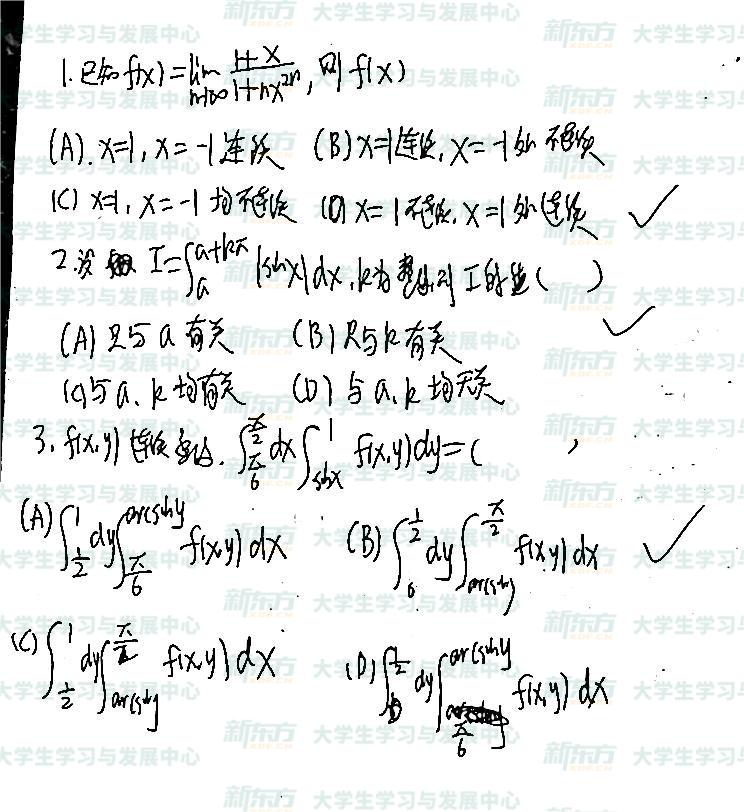 1.已知f(x)=lim n→∞ (1+x)/(1+nx^{2n}), 则f(x)
(A). x=1, x=-1连续 (B) x=1连续, x=-1处不连续
(C) x=1, x=-1均不连续 (D) x=1不连续, x=1处连续
2.设 I=∫_a^{a+kπ} |sinx|dx, k为整数,则I的值( )
(A) 只与a有关 (B) 只与k有关
(C)与a、k均有关 (D) 与a、k均无关
3. f(x,y)连续函数. ∫_{π/6}^{π/2}dx∫_{sinx}^{1} f(x,y)dy=( ,
(A)∫_{1/2}^{1}dy∫_{π/6}^{arcsiny} f(x,y)dx (B)∫_{0}^{1/2}dy∫_{arcsiny}^{π/2} f(x,y)dx
(C)∫_{1/2}^{1}dy∫_{arcsiny}^{π/2} f(x,y)dx (D)∫_{0}^{1/2}dy∫_{π/6}^{arcsiny} f(x,y)dx
新东方 XDF.CN 大学生学习与发展中心